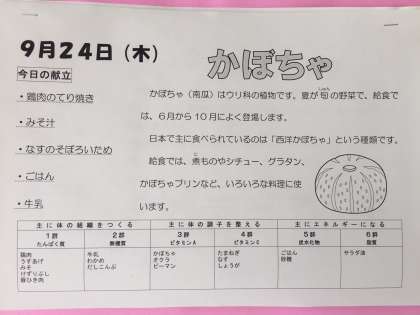 9月24日（木）
かぼちゃ
今日の献立
・鶏肉のてり焼き
・みそ汁
・なすのそぼろいため
・ごはん
・牛乳
かぼちゃ（南瓜）はウリ科の植物です。夏が旬の野菜で、給食
では、6月から10月によく登場します。
日本で主に食べられているのは「西洋かぼちゃ」という種類です。
給食では、煮ものやシチュー、グラタン、
かぼちゃプリンなど、いろいろな料理に使
います。
主に体の組織をつくる 主に体の調子を整える 主にエネルギーになる
1群 2群 3群 4群 5群 6群
たんぱく質 無機質 ビタミンA ビタミンC 炭水化物 脂質
鶏肉 牛乳 かぼちゃ たまねぎ ごはん サラダ油
うすあげ わかめ オクラ なす 砂糖
みそ だしこんぶ ピーマン しょうが
けずりぶし
豚ひき肉